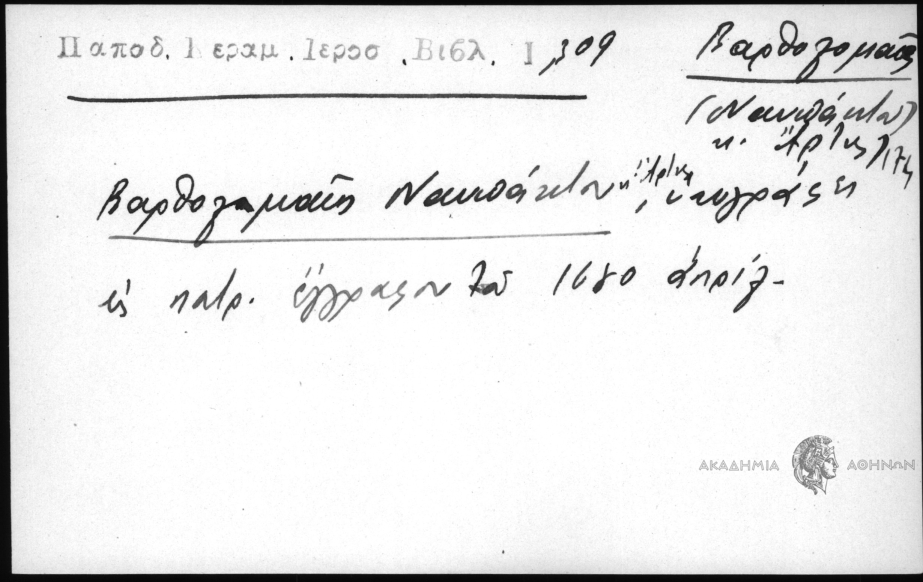 Παποδ. Κεραμ. Ιεροσ. Βιβλ. Ι, 309
Βαρθολομαῖος
(Ναυπάκτου)
κ. Ἄρτης)
Βαρθολομαῖος Ναυπάκτου κ. Ἄρτης, ὑπογράφει
εἰς πατρ. ἔγγραφον τοῦ 1680 ἀπριλ.
ΑΚΑΔΗΜΙΑ ΑΘΗΝΩΝ